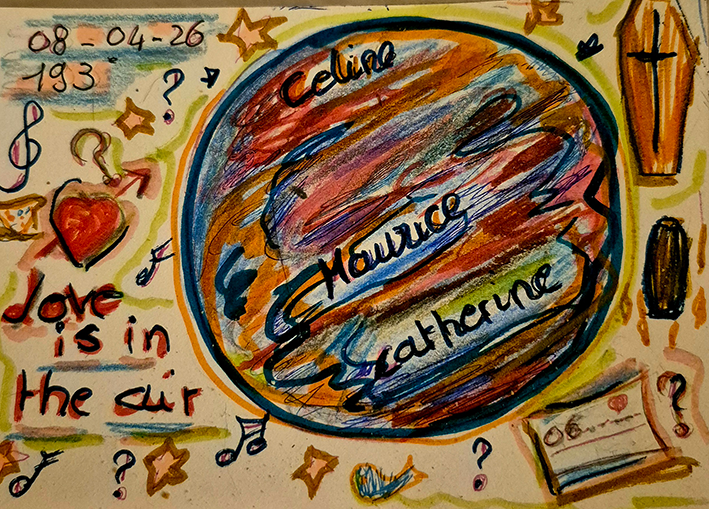 08-04-26
193
Celine
Maurice
Catherine
Love
is in
the air
06